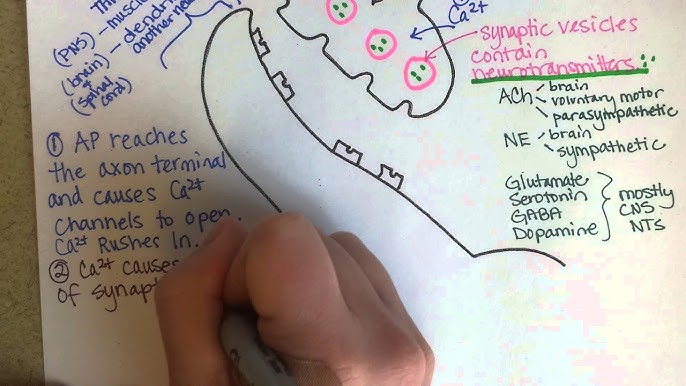 (PNS) - muscle
(brain) - dendr
+
(spinal
cord)
another ne
Ca²⁺
synaptic vesicles
contain
neurotransmitters
ACh
brain
voluntary motor
parasympathetic
NE
brain
sympathetic
Glutamate
Serotonin
GABA
Dopamine
mostly
CNS
NTs
① AP reaches
the axon terminal
and causes Ca²⁺
channels to open.
Ca²⁺ Rushes In.
② Ca²⁺ causes
of synapt